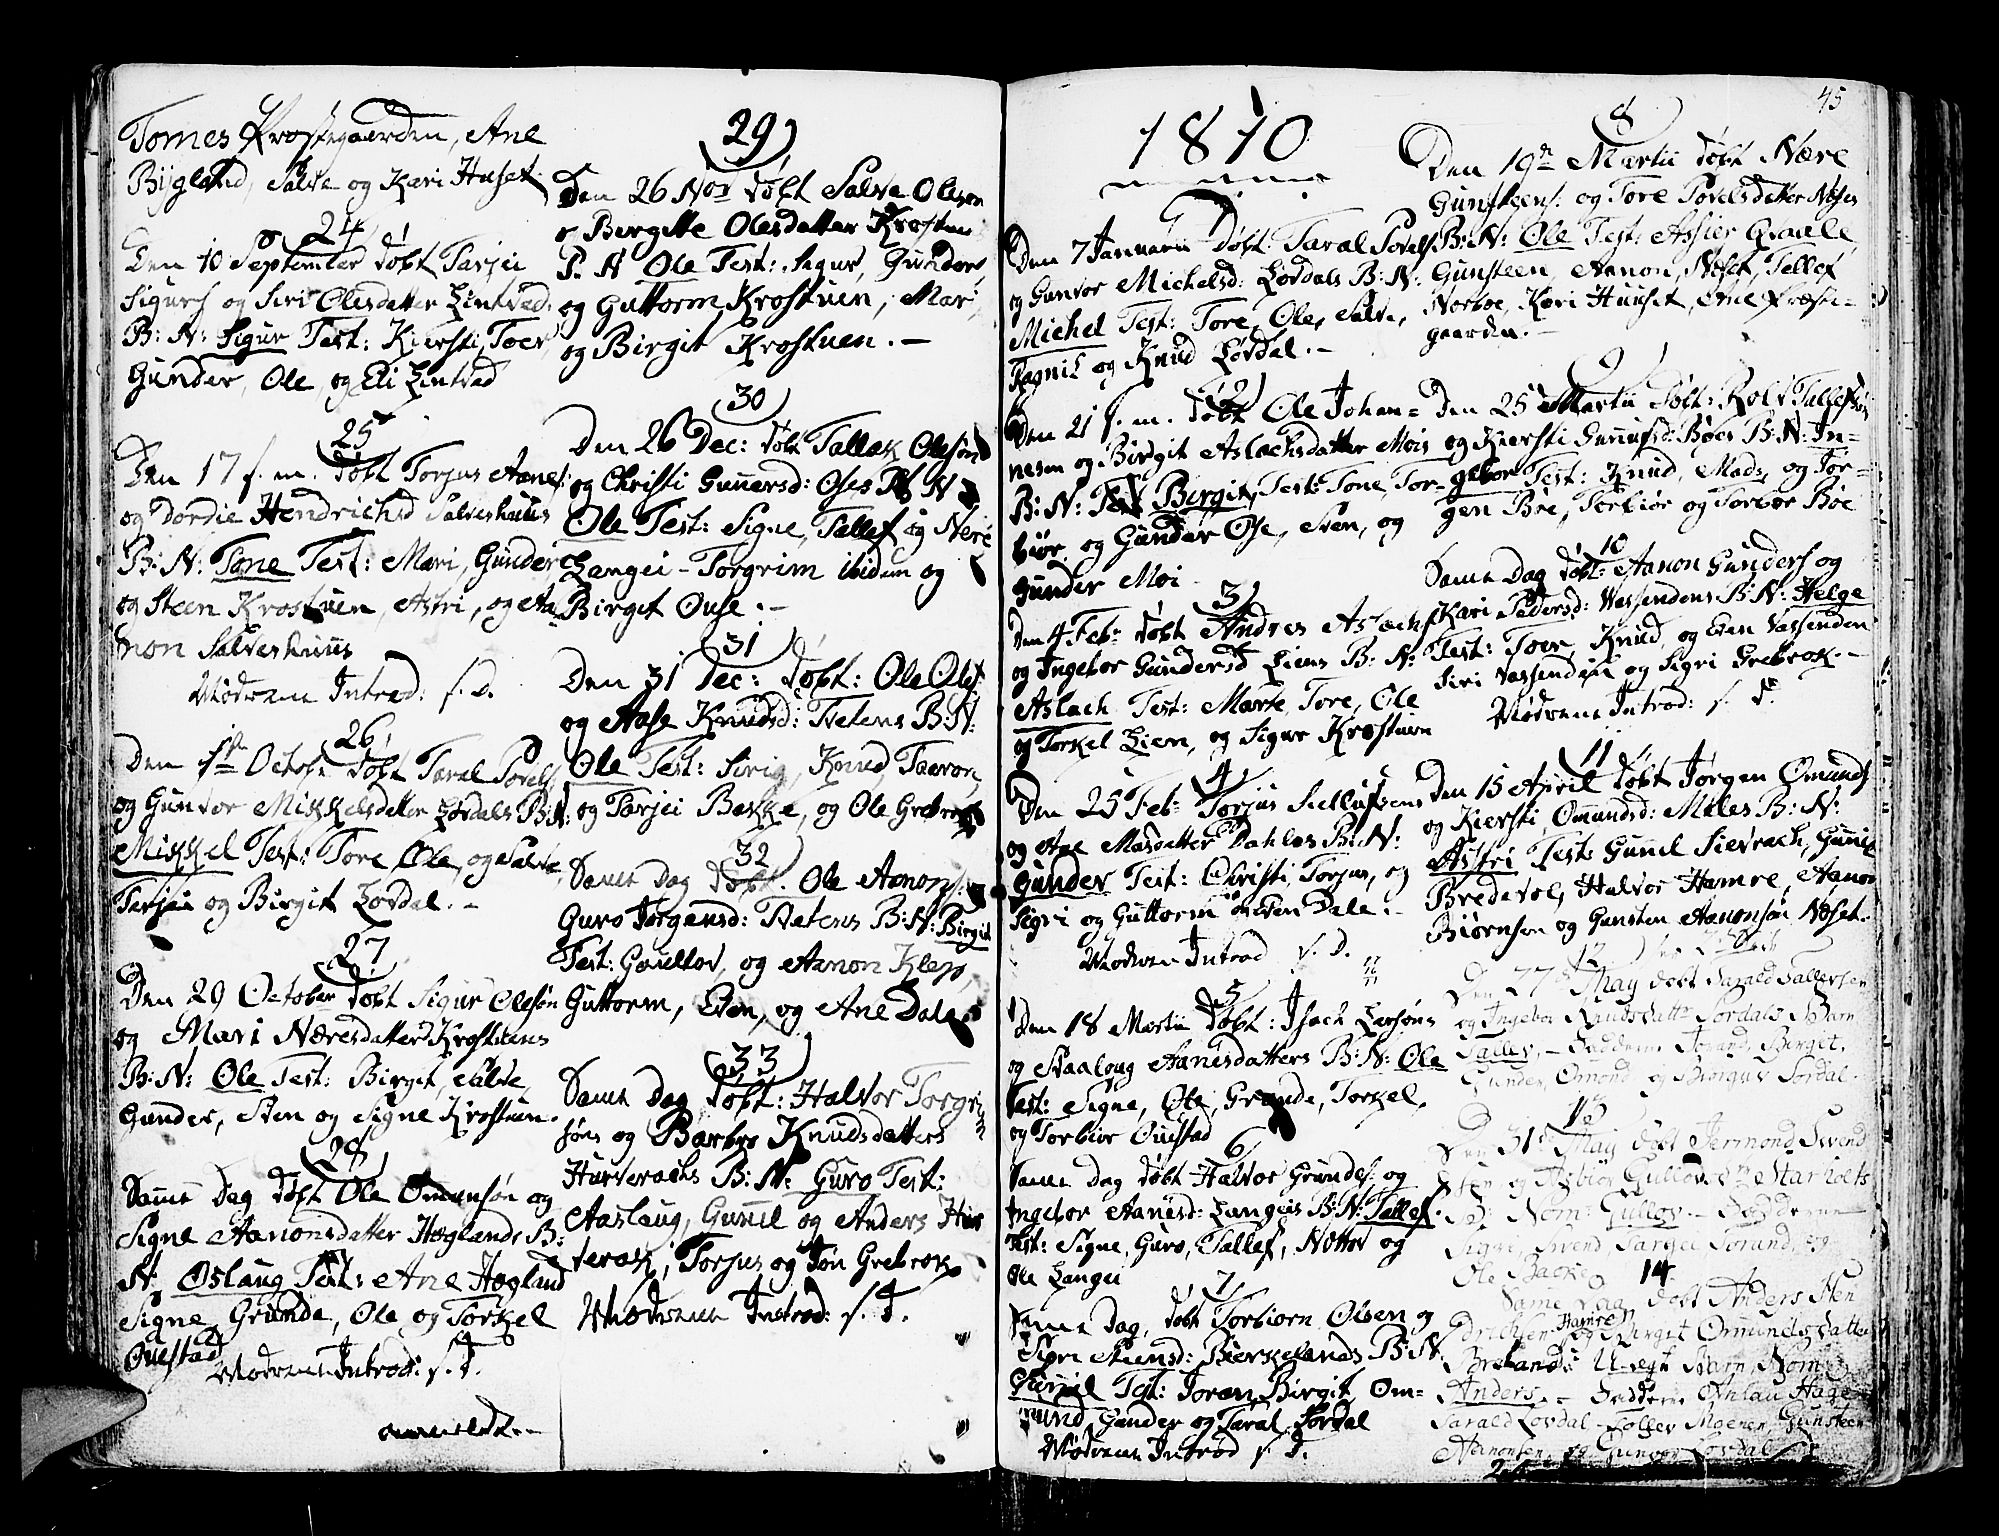 Tomes Præstegaarden, Ane
Bygland, Salve og Kari Huset.
24
Den 10 September døbt Tarjei
Sigurs og Siri Olesdatter Lintvæd.
B: N: Sigur Test: Kiersti, Toer,
Gunder, Ole, og Eli Lintvæd
25
Den 17 s. m. døbt Torjus Aanes:
og Dordie Hendrichsd Salveshuus
B: N: Tone Test: Mari, Gunder
og Steen Krostuen, Astri, og Aa
non Salveshuus
Mødrene Introd: s. D.
26
Den 1ste Octobr døbt Taral Torels
og Gunvor Mikkelsdatter Lørdals B: N:
Mikkel Test: Tore, Ole, og Salve,
Tarjei og Birgit Lordal. -
27
Den 29 October døbt Sigur Olesøn
og Mari Næresdatter Krostuens
B: N: Ole Test: Birgit, Salve,
Gunder, Sven og Signe Krostuen.
28
Samme Dag døbt Ole Omunsøn og
Signe Aanonsdatter Hoglands B:
N: Oslaug Test: Ane Hogland
Signe, Grunde, Ole og Torkel
Ouestad
Mødrene Introd: s. T.
29
Den 26 Nov døbt Salve Olesøn
o Bergitte Olesdatter Krostuen
P. N Ole Test: Sigur, Gunder,
og Guttorm Krostuen, Mari,
og Birgit Krostuen. -
30
Den 26 Dec: døbt Tallak Olesøn
og Christi Gunnersd: Oses B N
Ole Test: Signe, Tallef og Neri
Langei - Torgrim ibidem og
Birgit Ouse. -
31
Den 31 Dec: døbt: Ole Oles
og Aase Knudsd: Tvetens B: N:
Ole Test: Sirig, Knud, Taaron,
og Tarjei Bakke, og Ole Grebrok
32
Samme Dag døbt. Ole Aanons.
Guro Jorgensd: Tvetens B: N: Birgit
Test: Goullov, og Aanon Klep,
Guttorm, Even, og Ane Dale
33
Samme Dag døbt: Halvor Torgrim
søns og Barbro Knudsdatters
Hurverachs B: N: Guro Test:
Aaslaug, Gunil og Anders Hur
verak, Torjus og Jøn Grebrok
Mødrene Introd: s. T.
45
1810
1
Den 7 Januarii døbt: Taral Torels
og Gunvor Michelsd: Lordals B: N:
Michel Test: Tore, Ole, Salve,
Ragnil og Knud Lordal. -
2
Den 21 s. m. døbt Ole Johan=
nesen og Birgit Aslachsdatter Mois
B: N: Birgit, Test: Tone, Tor-
biør og Gunder Ose, Sven, og
Gunder Moi
3
Den 4 Febr døbt Andres Aslachs
og Ingebor Gundersd Liens B: N:
Aslach Test: Marte, Tore, Ole
og Torkel Lien, og Sigur Krostuen
4
Den 25 Feb: Torjus
og Ane Masdatter Dahles B: N:
Gunder Test: Christi, Torjus, og
Sigri og Guttorm Dale. -
Mødrene Introd s. D.
5
Den 18 Martii døbt: Isach Larsøns
og Staaloug Aanesdatters B: N: Ole
Test: Signe, Ole, Grunde, Torkel,
og Torbiør Ouestad
6
Samme Dag døbt Halvor Grundes: og
Ingebor Aanesd: Langeis B: N: Tallef.
Test: Signe, Guro, Tallef, Nottov og
Ole Langei
7
Samme Dag, døbt Torbiorn Olsen og
Siri Steensd: Bierkelands B: N
Gunnil Test: Joran, Birgit, Om=
mund, Gunder og Taral Lordal
Mødrene Introd s. T.
8
Den 19de Martii døbt Nære
Gunsteens: og Tore Torelsdatter Noses
B: N: Ole Test: Assier Qvaale,
Gunsteen, Aanon, Noset, Tallef
Norboe, Kari Huuset, Ane Præste=
gaarden. -
9
Den 25 Martii døbt: Rolv Tallefsøn
og Kiersti Gunufsd: Bøes B: N: In=
gebor Test: Knud, Mads, og Jør=
gen Bøe, Torbiør og Torbor Bøe
10
Samme Dag døbt: Aanon Gunders og
Kari Pedersd: Vassendens B: N: Helge
Test: Toer, Knud, og Even Vassenden
Siri Vassenden og Sigri Grebrok. -
Mødrene Introd: s. T.
11
Den 15 April døbt Jørgen Omunds
og Kiersti, Omundsd: Meles B: N:
Astri Test: Gunil Sievrach, Gunil
Bredevol, Halvor Hamre, Aanon
Biørnsen og Gunsten Aanonsøn Noset.
12
Den 27de May døbt Tarald Tallefsen
og Ingebor Knudsdatter Lordals Barn
Tallev, - Faddere Torand, Berget,
Gunder, Omond og Lordal.
13
Den 31te May døbt Jermond Svend
sen og Asbiør Starholts
B: Nom: Gullov. - Fadderne
Sigri, Svend, Targei Torund, og
Ole Backe
14
Samme Dag døbt Anders Hen
drichsen Hamre og Birget Omundsdatter
Brelands Uægt Barn, Nom
Anders. - Fadderne
Tarald Lovdal - Tollev Moenen, Gunsteen
Aanonsen, og Gunvor Lovdal